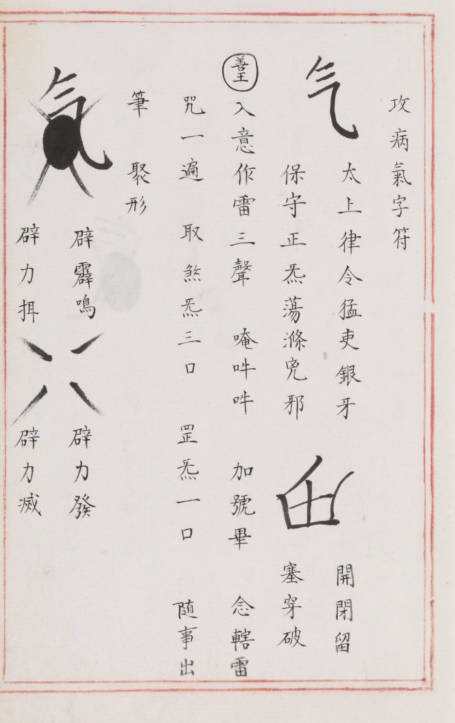 攻病氣字符
气
太上律令猛吏銀牙
保守正炁蕩滌兇邪
開閉留
塞穿破
善王
入意作雷三聲 唵吽吽 加號畢 念轄雷
咒一遍 取煞炁三口 罡炁一口 随事出
筆 聚形
氣
辟霹鳴 辟力發
辟力揖 辟力滅